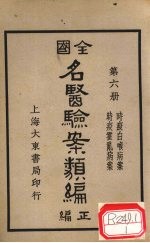 全國
名醫驗案類編
正編
第六册
時疫白喉病案
時疫霍亂病案
上海大東書局印行